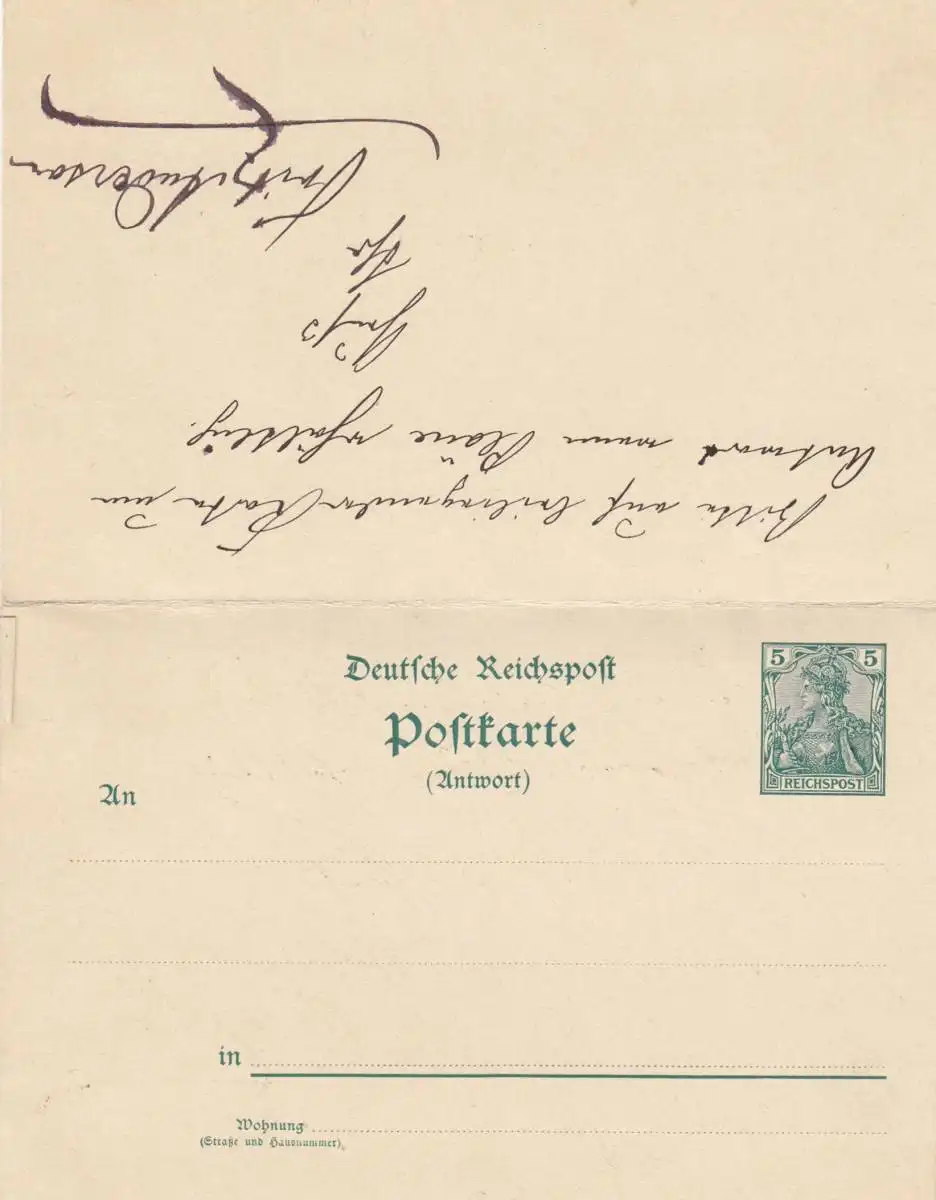 Bitte auf beiliegender Karte um
Antwort wann Pläne erhältlich.
Gruß
Ihr
Fritz
Deutsche Reichspost
Postkarte
(Antwort)
5 5
REICHSPOST
An
in
Wohnung
(Straße und Hausnummer)